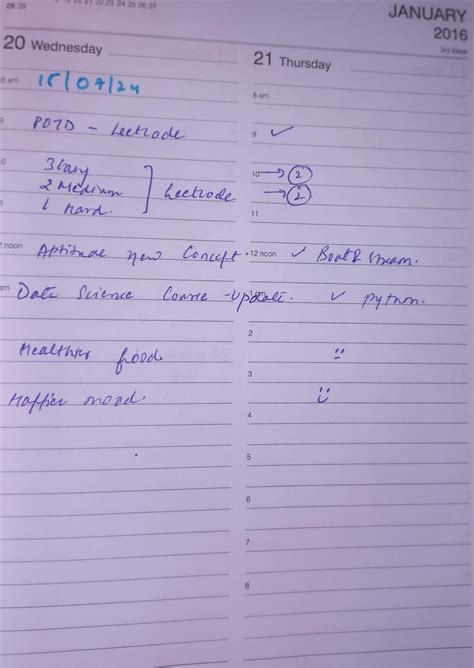 28 29
20 21 22 23 24 25 26 27
JANUARY
2016
3rd Week
20 Wednesday
21 Thursday
8 am 15/07/24
8 am
9 POTD - Leetcode
9 ✓
10 3 Easy
2 Medium } Leetcode
1 Hard.
10 → 2
→ 2
11
2 noon Aptitude new Concept.
12 noon ✓ Boat & stream.
Data Science Course - Update.
✓ python.
2
Healthier food
3
Happier mood.
4
5
6
7
8